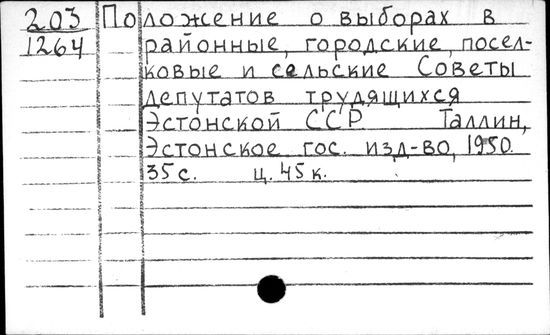 203 Положение о выборах в
1264 районные, городские, посел-
ковые и сельские Советы
депутатов трудящихся
Эстонской ССР Таллин,
Эстонское гос. изд-во, 1950.
35 с. ц. 45 к.